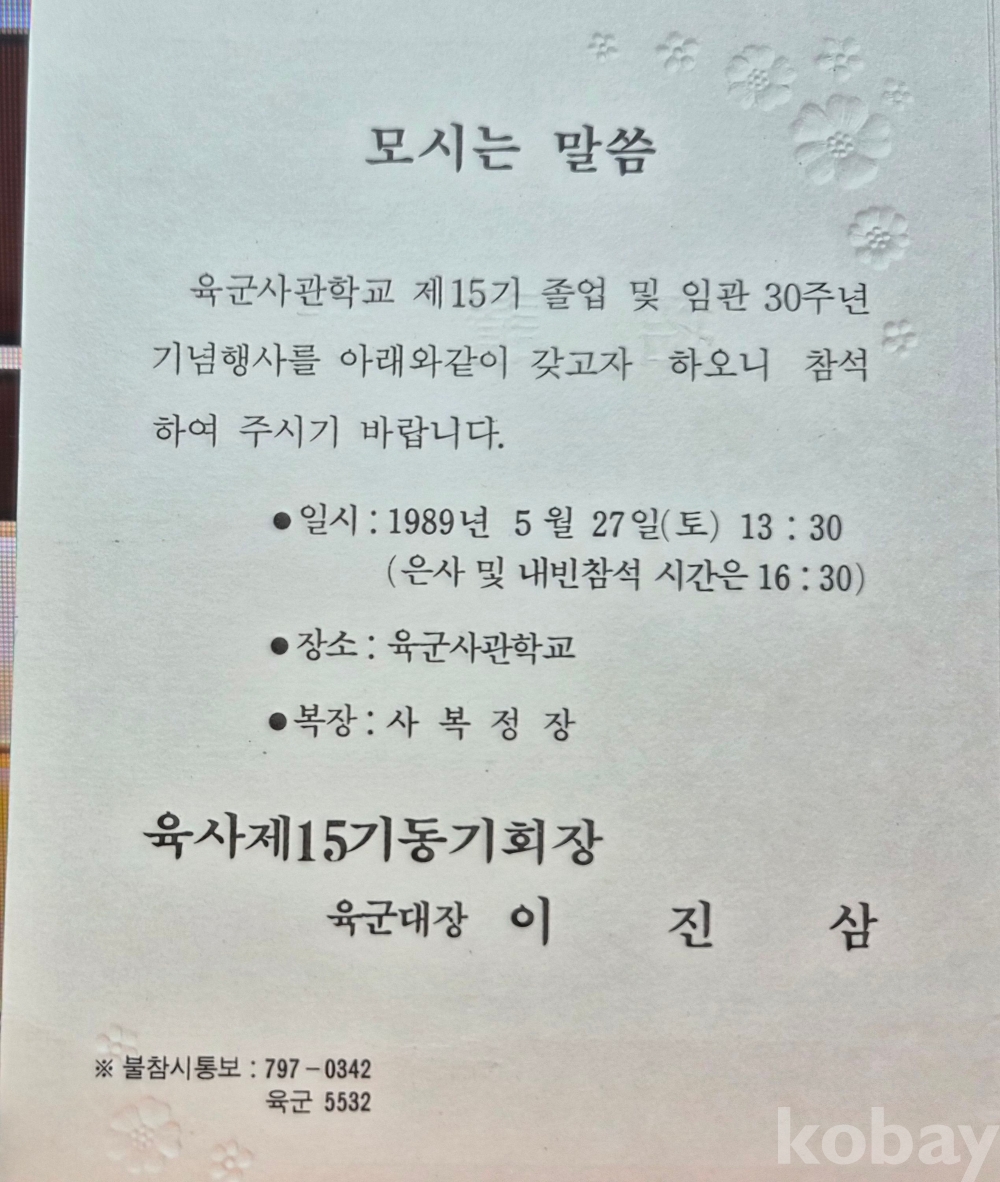 모시는 말씀
육군사관학교 제15기 졸업 및 임관 30주년
기념행사를 아래와같이 갖고자 하오니 참석
하여 주시기 바랍니다.
●일시 : 1989년 5월 27일(토) 13 : 30
(은사 및 내빈참석 시간은 16 : 30)
●장소 : 육군사관학교
●복장 : 사 복 정 장
육사제15기동기회장
육군대장 이 진 삼
※ 불참시통보 : 797－0342
육군 5532
kobay